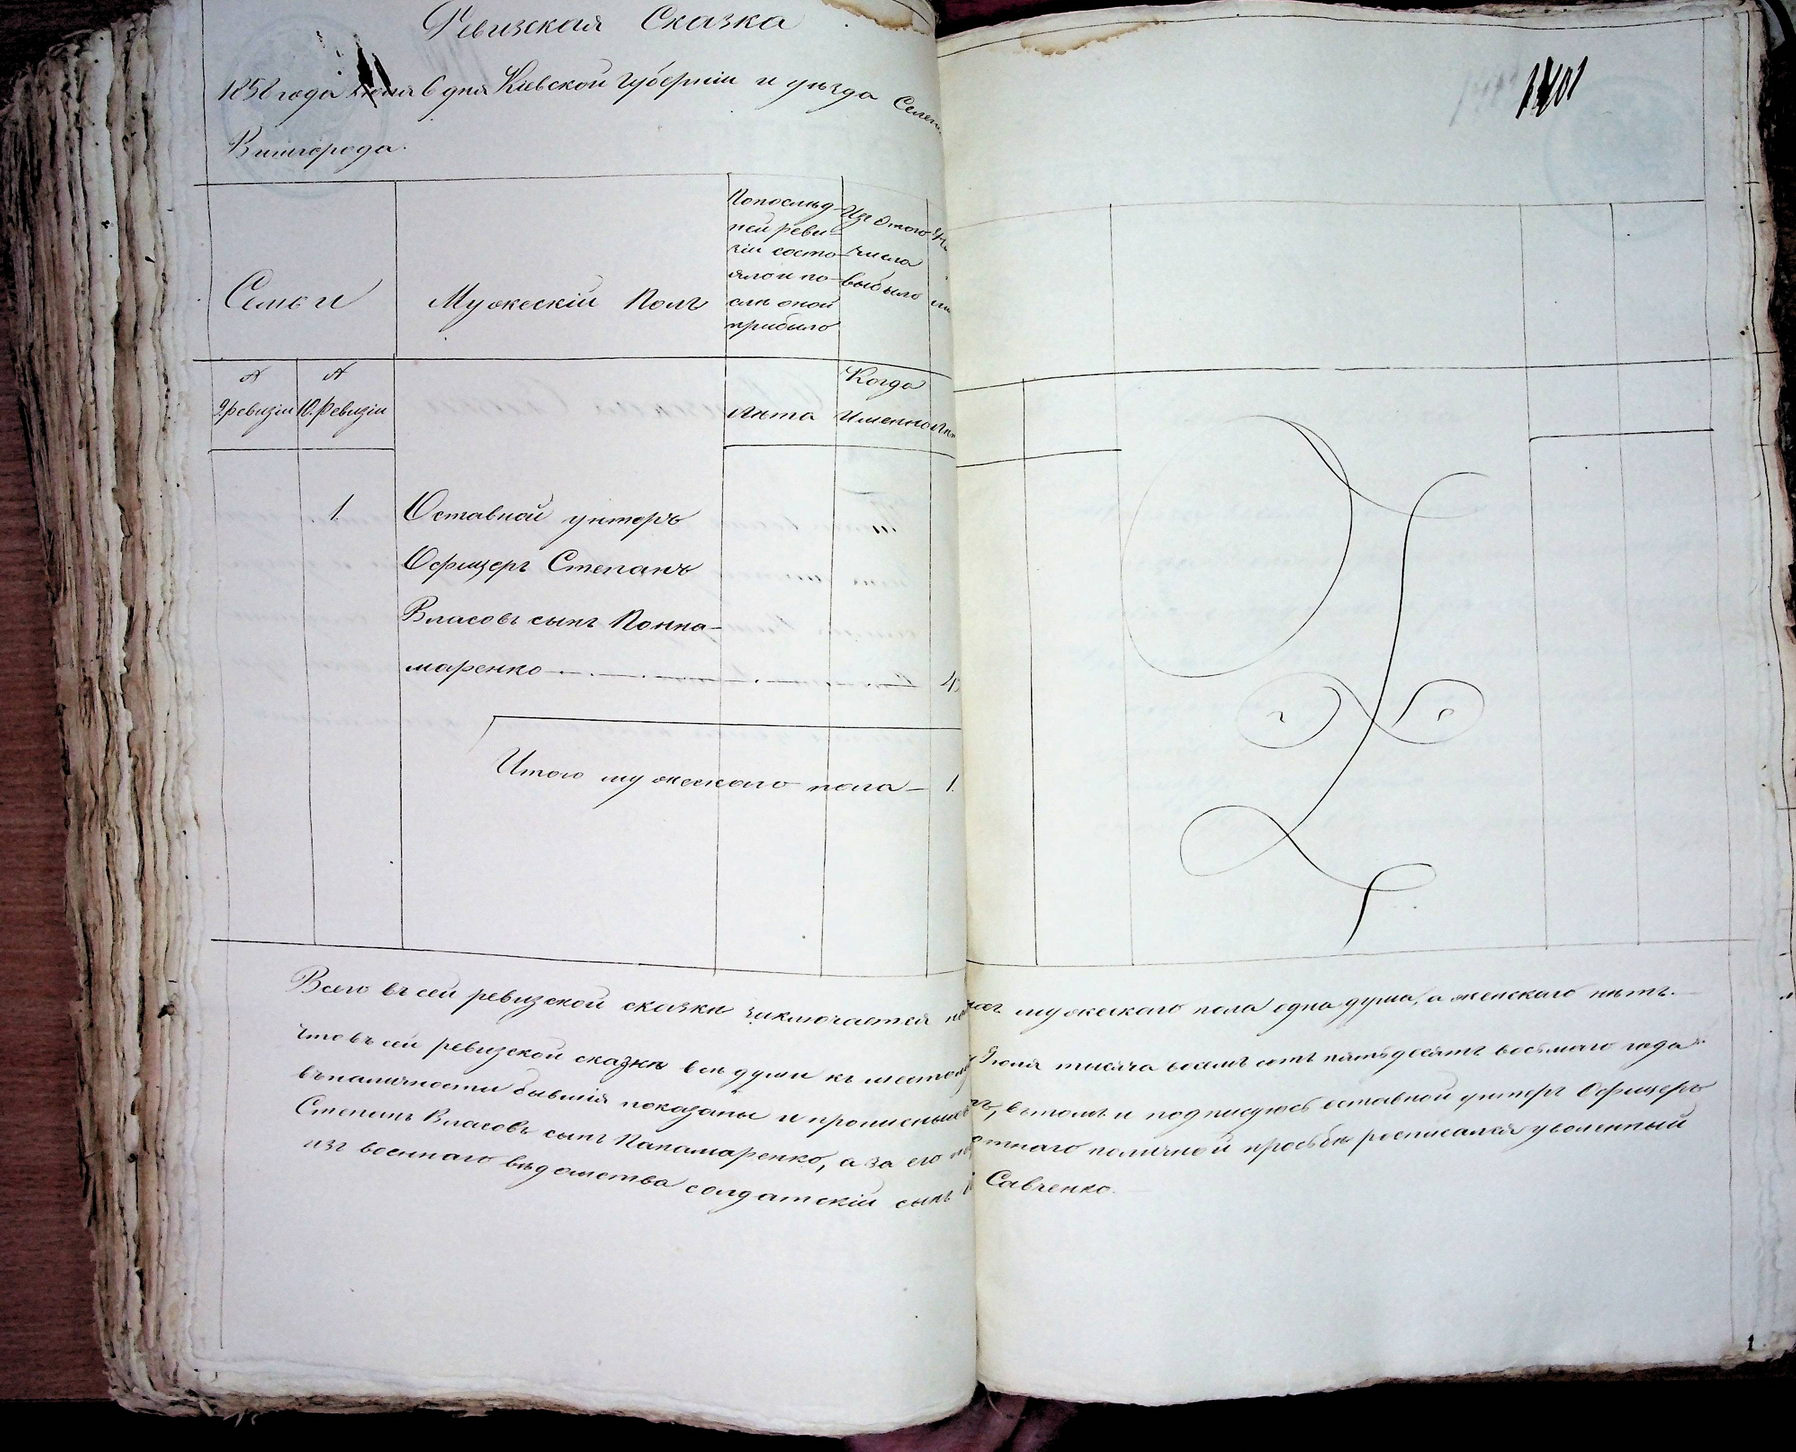 Ревизская Сказка
1858 года Июня 6 дня Киевской Губерніи и уезда Селен
Вишгорода.
1401
Семьи
Мужескій Полъ
Попослѣд-
ней реви-
зіи состо-
яло и по-
слѣ оной
прибыло
Изъ этого
числа
выбыло
№ 9. ревизіи
№ 10. Ревизіи
Лѣта
Когда
Именно
1.
Оставной унтеръ
Офицеръ Степанъ
Власовъ сынъ Понна-
маренко
Итого мужескаго пола — 1.
Всего въ сей ревизской сказки заключается мужескаго пола одна душа, а женскаго нѣтъ.
Что въ сей ревизской сказки всѣ души къ Іюня тысяча восемъ сотъ пятьдесятъ восьмаго года
въналичности бывшія показаны и прописныхъ въ томъ и подписуюсь оставной унтеръ Офицеръ
Степанъ Власовъ сынъ Панамаренко, а за его личной просьбы росписался уволенный
изъ военнаго вѣдомства солдатскій сынъ Савченко.